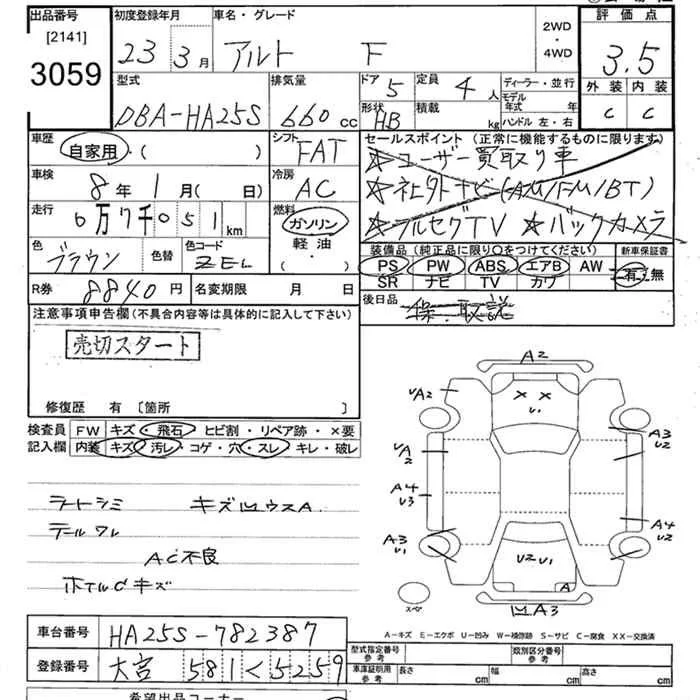 出品番号 初度登録年月 車名・グレード 評価点
[2141]
3059
23年 3月 アルト F 2WD・4WD 3.5
型式 排気量 ドア 5 定員 4人 ディーラー・並行 外装 内装
DBA-HA25S 660cc 形状 HB 積載 kg モデル年式 年 ハンドル 左・右 C C
車歴 自家用・( ) シフト FAT セールスポイント (正常に機能するものに限ります)
★ユーザー買取り車
車検 8年 1月( 日) 冷房 AC ★社外ナビ(AM/FM/BT)
走行 6万7千051km 燃料 ガソリン・軽油・( ) ★フルセグTV ★バックカメラ
色 ブラウン 色替 色コード ZEL 装備品 (純正品に限り○をつけてください) 新車保証書
PS PW ABS エアB AW 有・無
SR ナビ TV カワ
R券 8840円 名変期限 月 日 後日品 保・取説
注意事項申告欄 (不具合内容等は具体的に記入して下さい)
売切スタート
修復歴 有 [箇所 ]
検査員記入欄 FW キズ・飛石・ヒビ割・リペア跡・×要
内装 キズ・汚レ・コゲ・穴・スレ・キレ・破レ
シートシミ キズ凹ウスA
テールワレ
AC不良
ホイルCキズ
A2
UA2 × × U1
A3 U2
UA2
A4 U3
A4 U2
A3 U1
U2 U1
A
凹A3
スペア
A-キズ E-エクボ U-凹み W-補修跡 S-サビ C-腐食 XX-交換済
車台番号 HA25S-782387
登録番号 大宮 581 く 5259
型式指定番号 参考 類別区分番号 参考
車庫証明用 参考 長さ cm 幅 cm 高さ cm
希望出品コーナー